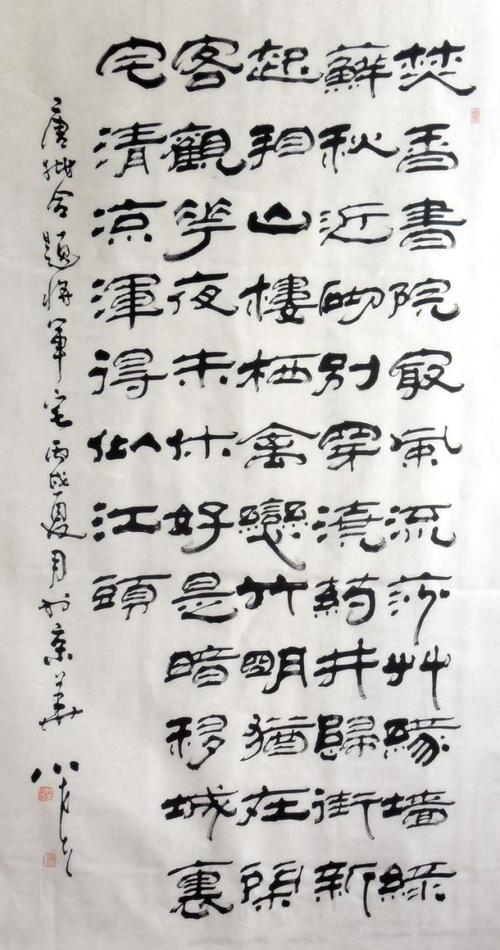 焚香書院冣風流莎艸緣墻綠
蘚秋近砌別穿澆葯井歸街新
起相山樓栖禽戀竹明猶在
客觀華夜未休好是暗移城裏
宅清凉渾得似江頭
唐姚合題將軍宅丙戌夏月於京華